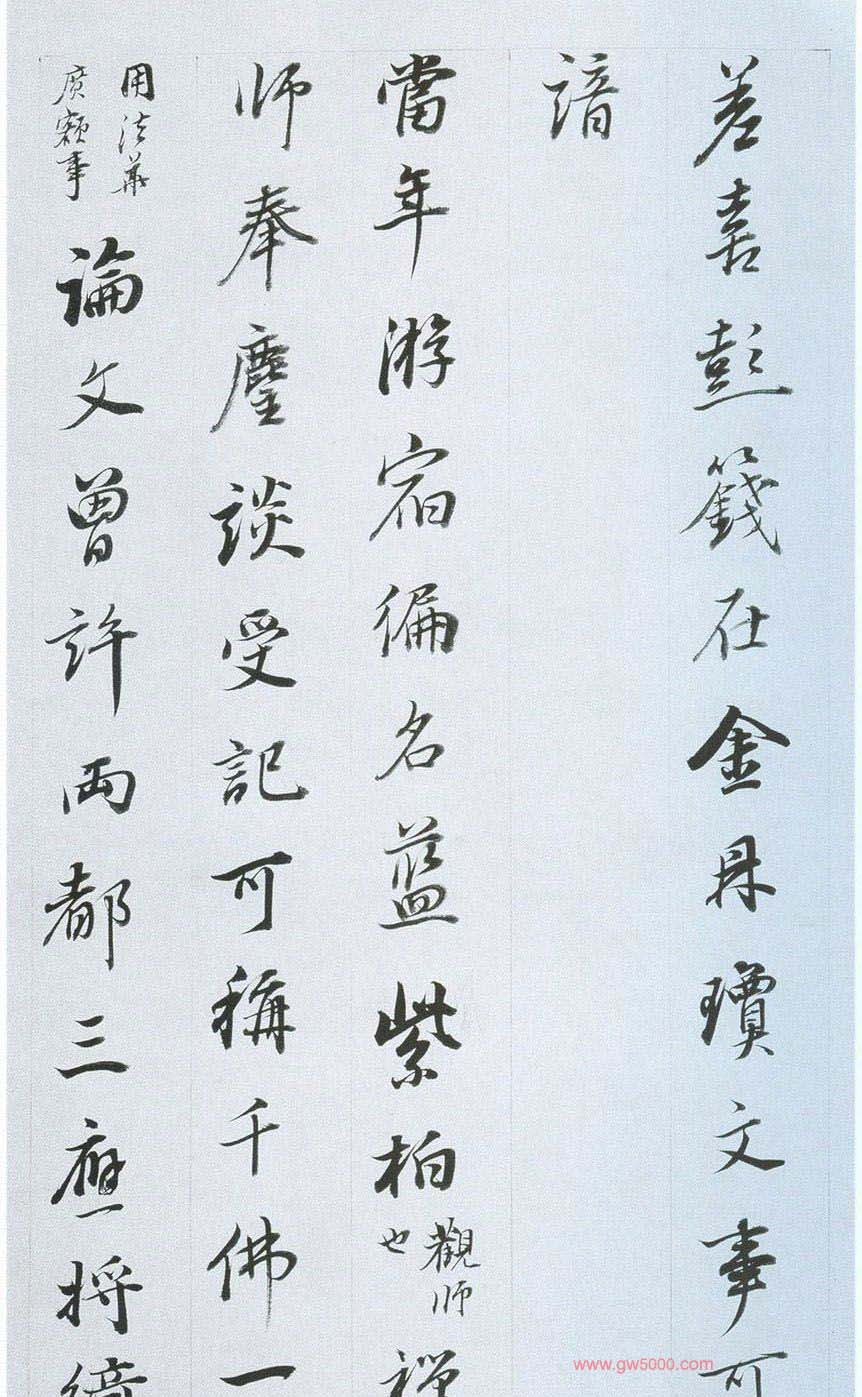 差喜彭籛在金丹瓊文事可
諳
當年游宿徧名藍紫柏觀師也禪
師奉麈談受記可稱千佛一
用法華廣額事論文曾許兩都三應一將
www.gw5000.com